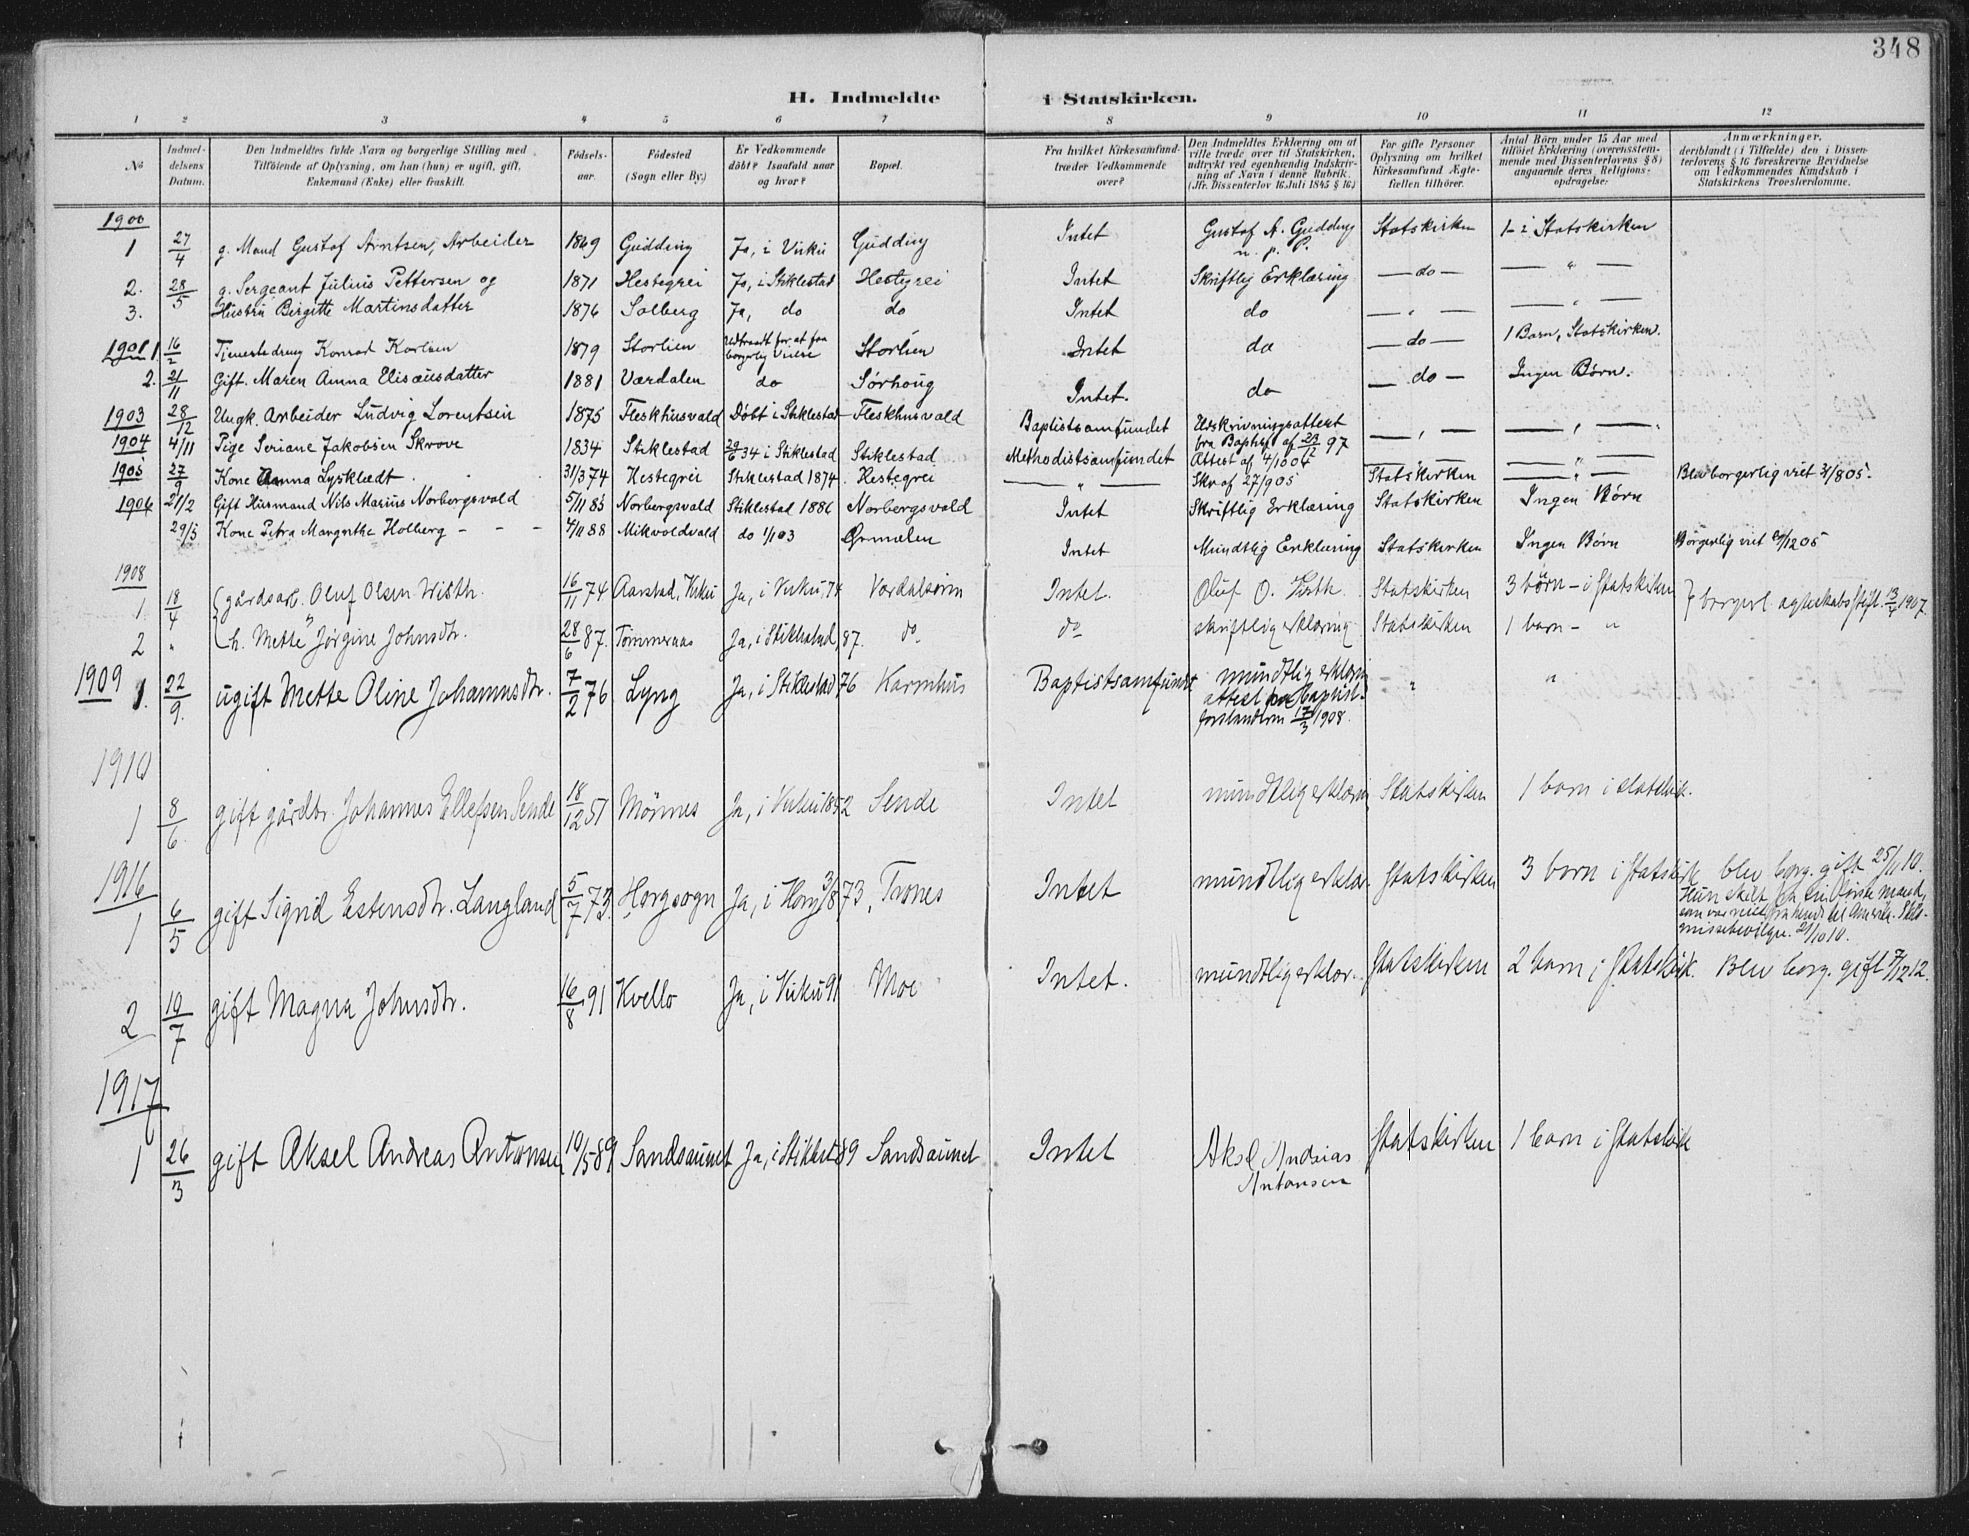 348
H. Indmeldte i Statskirken.
1 2 3 4 5 6 7 8 9 10 11 12
No
Indmel-
delsens
Datum.
Den Indmeldtes fulde Navn og borgerlige Stilling med
Tilföiende af Oplysning, om han (hun) er ugift, gift,
Enkemand (Enke) eller fraskilt.
Födsels-
aar.
Födested
(Sogn eller By.)
Er Vedkommende
döbt? Isaafald naar
og hvor?
Bopæl.
Fra hvilket Kirkesamfund
træder Vedkommende
over?
Den Indmeldtes Erklæring om at
ville træde over til Statskirken,
udtrykt ved egenhændig Indskriv-
ning af Navn i denne Rubrik.
(Jfr. Dissenterlov 16 Juli 1845 § 16.)
For gifte Personer
Oplysning om hvilket
Kirkesamfund Ægte-
fællen tilhörer.
Antal Börn under 15 Aar med
tilföiet Erklæring (overensstem-
mende med Dissenterlovens § 8)
angaaende deres Religions-
opdragelse.
Anmærkninger,
deriblandt (i Tilfælde) den i Dissen-
terlovens § 16 foreskrevne Bevidnelse
om Vedkommendes Kundskab i
Statskirkens Troeslærdomme.
1900
1 27/4 g. Mand Gustaf Arntsen, Arbeider 1869 Gudding Ja, i Vuku Gudding Intet Gustaf A. Gudding Statskirken 1 i Statskirken
m. p. P.
2. 28/5 g. Sergeant Julius Pettersen og 1871 Hestegrei Ja, i Stiklestad Hestegrei Intet Skriftlig Erklæring — do — — " —
3. Hustru Birgitte Martinsdatter 1876 Solberg Ja, do do Intet do — " — — " —
1901 1 16/2 Tjenestedreng Konrad Karlsen 1879 Storlien Udtraadt for at faa
borgerlig Vielse Storlien Intet do — do — 1 Barn, Statskirken.
2. 21/11 Gift. Maren Anna Elisæusdatter 1881 Værdalen do Sørhoug Intet. do — do — Ingen Børn.
1903 28/12 Ungk. Arbeider Ludvig Lorentsen 1875 Fleskhusvald Døbt i Stiklestad Fleskhusvald Baptistsamfundet Udskrivningsattest
fra Baptist af 28/12 97 — " — — " —
1904 4/11 Pige Seriane Jakobsen Skrove 1834 Stiklestad 29/6 34 i Stiklestad Stiklestad Methodistsamfundet Attest af 4/10 04 — " — — " —
1905 27/9 Kone Anna Lyskledt 31/3 74 Hestegrei Stiklestad 1874. Hestegrei — " — Skr af 27/9 05 Statskirken — Blev borgerlig viet 3/8 05.
1906 21/2 Gift Husmand Nils Marius Norbergsvald 5/11 85 Norbergsvald Stiklestad 1886 Norbergsvald Intet Skriftlig Erklæring Statskirken Ingen Børn
29/5 Kone Petra Margrethe Holberg - - - 4/11 88 Mikvoldvald do 1/1 03 Ørmelen Intet Mundtlig Erklæring Statskirken Ingen Børn Borgerlig viet 29/12 05
1908
1. 18/4 gårdsarb. Oluf Olsen Wisth. 16/11 74 Aarstad, Vuku Ja, i Vuku, 74 Værdalsøren Intet. Oluf O. Visth. Statskirken 3 børn – i Statskirken borgerl. ægteskabsstift. 13/4 1907.
2 " h. Mette Jørgine Johnsdtr. 28/6 87. Tømmeraas Ja, i Stiklestad, 87. do do skriftlig erklæring Statskirken 1 barn – "
1909 1. 22/9. ugift Mette Oline Johannsdtr. 7/2 76 Lyng Ja, i Stiklestad 76 Karmhus Baptistsamfundet mundtlig erklæring " "
attest fra baptist-
forstanderen 17/3 1908.
1910
1 8/6. gift gårdbr. Johannes Ellefsen Sende 18/12 51 Mönnes Ja, i Vuku 1852 Sende Intet mundtlig erklæring Statskirken 1 barn i statskirk.
1916
1 6/5 gift Sigrid Estensdtr. Langland 5/7 73. Horgsogn Ja, i Horg 3/8 73, Trones Intet mundtlig erklær. Statskirken 3 barn i Statskirk blev borg. gift 25/11 10.
Hun skilt fra sin første mand,
som var reist fra hende til Amerika. Skils-
missebevilgn. 21/10 10.
2 19/7 gift Magna Johnsdtr. 16/8 91 Kvello Ja, i Vuku 91 Moe Intet. mundtlig erklær. Statskirken 2 barn i Statskirk. Blev borg. gift 7/12 12.
1917
1 26/3 gift Aksel Andreas Antonsen 10/5 89 Sandsaunet Ja, i Stiklest. 89 Sandsaunet Intet Aksel Andreas
Antonsen Statskirken 1 barn i Statskirk